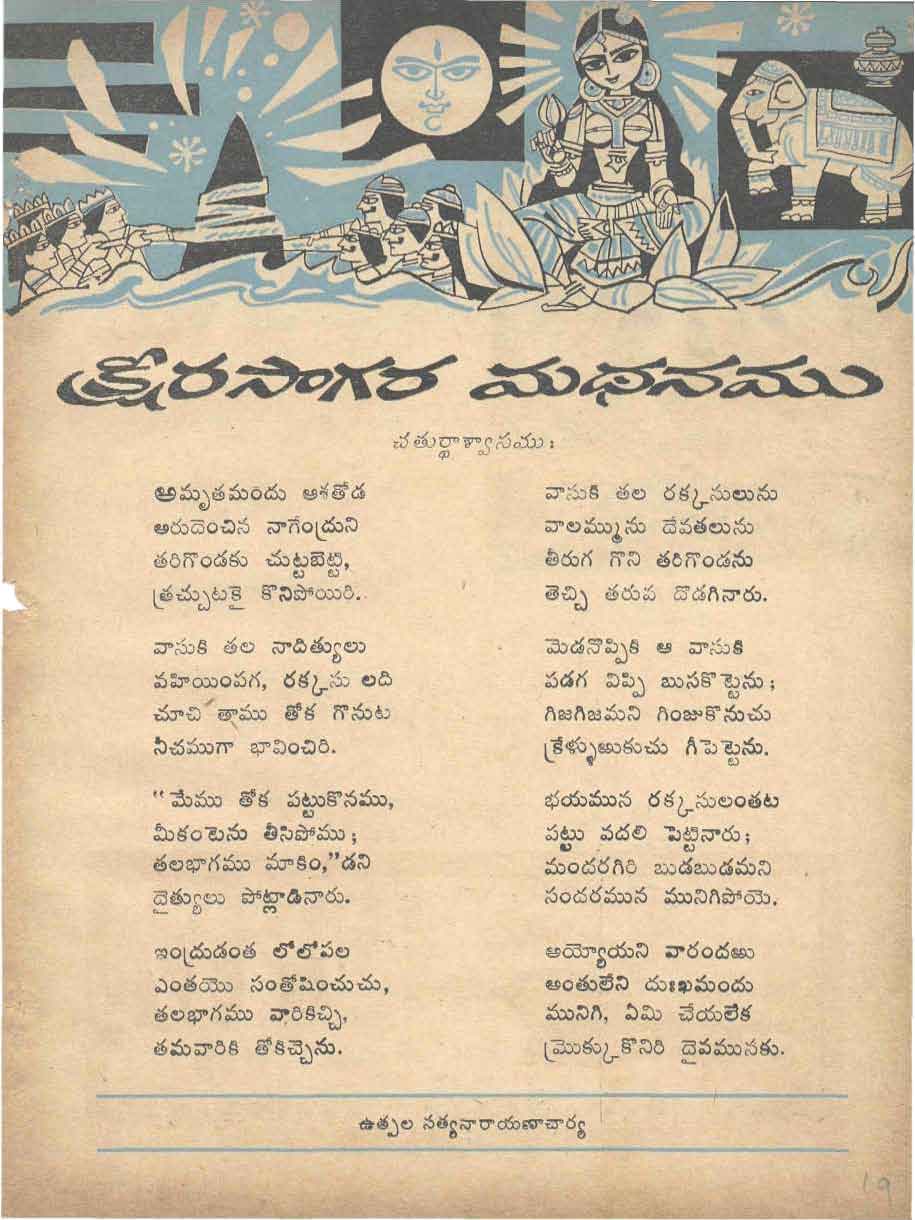 క్షీరసాగర మథనము
చతుర్థాశ్వాసము :
అమృతమందు ఆశతోడ
అరుదెంచిన నాగేంద్రుని
తరిగొండకు చుట్టబెట్టి,
త్రచ్చుటకై కొనిపోయిరి.
వాసుకి తల నాదిత్యులు
వహియింపగ, రక్కసు లది
చూచి తాము తోక గొనుట
నీచముగా భావించిరి.
“మేము తోక పట్టుకొనము,
మీకంటెను తీసిపోము ;
తలభాగము మాకిం,”డని
దైత్యులు పోట్లాడినారు.
ఇంద్రుడంత లోలోపల
ఎంతయొ సంతోషించుచు,
తలభాగము వారికిచ్చి,
తమవారికి తోకిచ్చెను.
వాసుకి తల రక్కసులును
వాలమ్మును దేవతలును
తీరుగ గొని తరిగొండను
తెచ్చి తరువ దొడగినారు.
మెడనొప్పికి ఆ వాసుకి
పడగ విప్పి బుసకొట్టెను ;
గిజగిజమని గింజుకొనుచు
క్రేళ్ళుఱుకుచు గీపెట్టెను.
భయమున రక్కసులంతట
పట్టు వదలి పెట్టినారు ;
మందరగిరి బుడబుడమని
సందరమున మునిగిపోయె.
అయ్యోయని వారందఱు
అంతులేని దుఃఖమందు
మునిగి, ఏమి చేయలేక
మ్రొక్కుకొనిరి దైవమునకు.
ఉత్పల సత్యనారాయణాచార్య
19